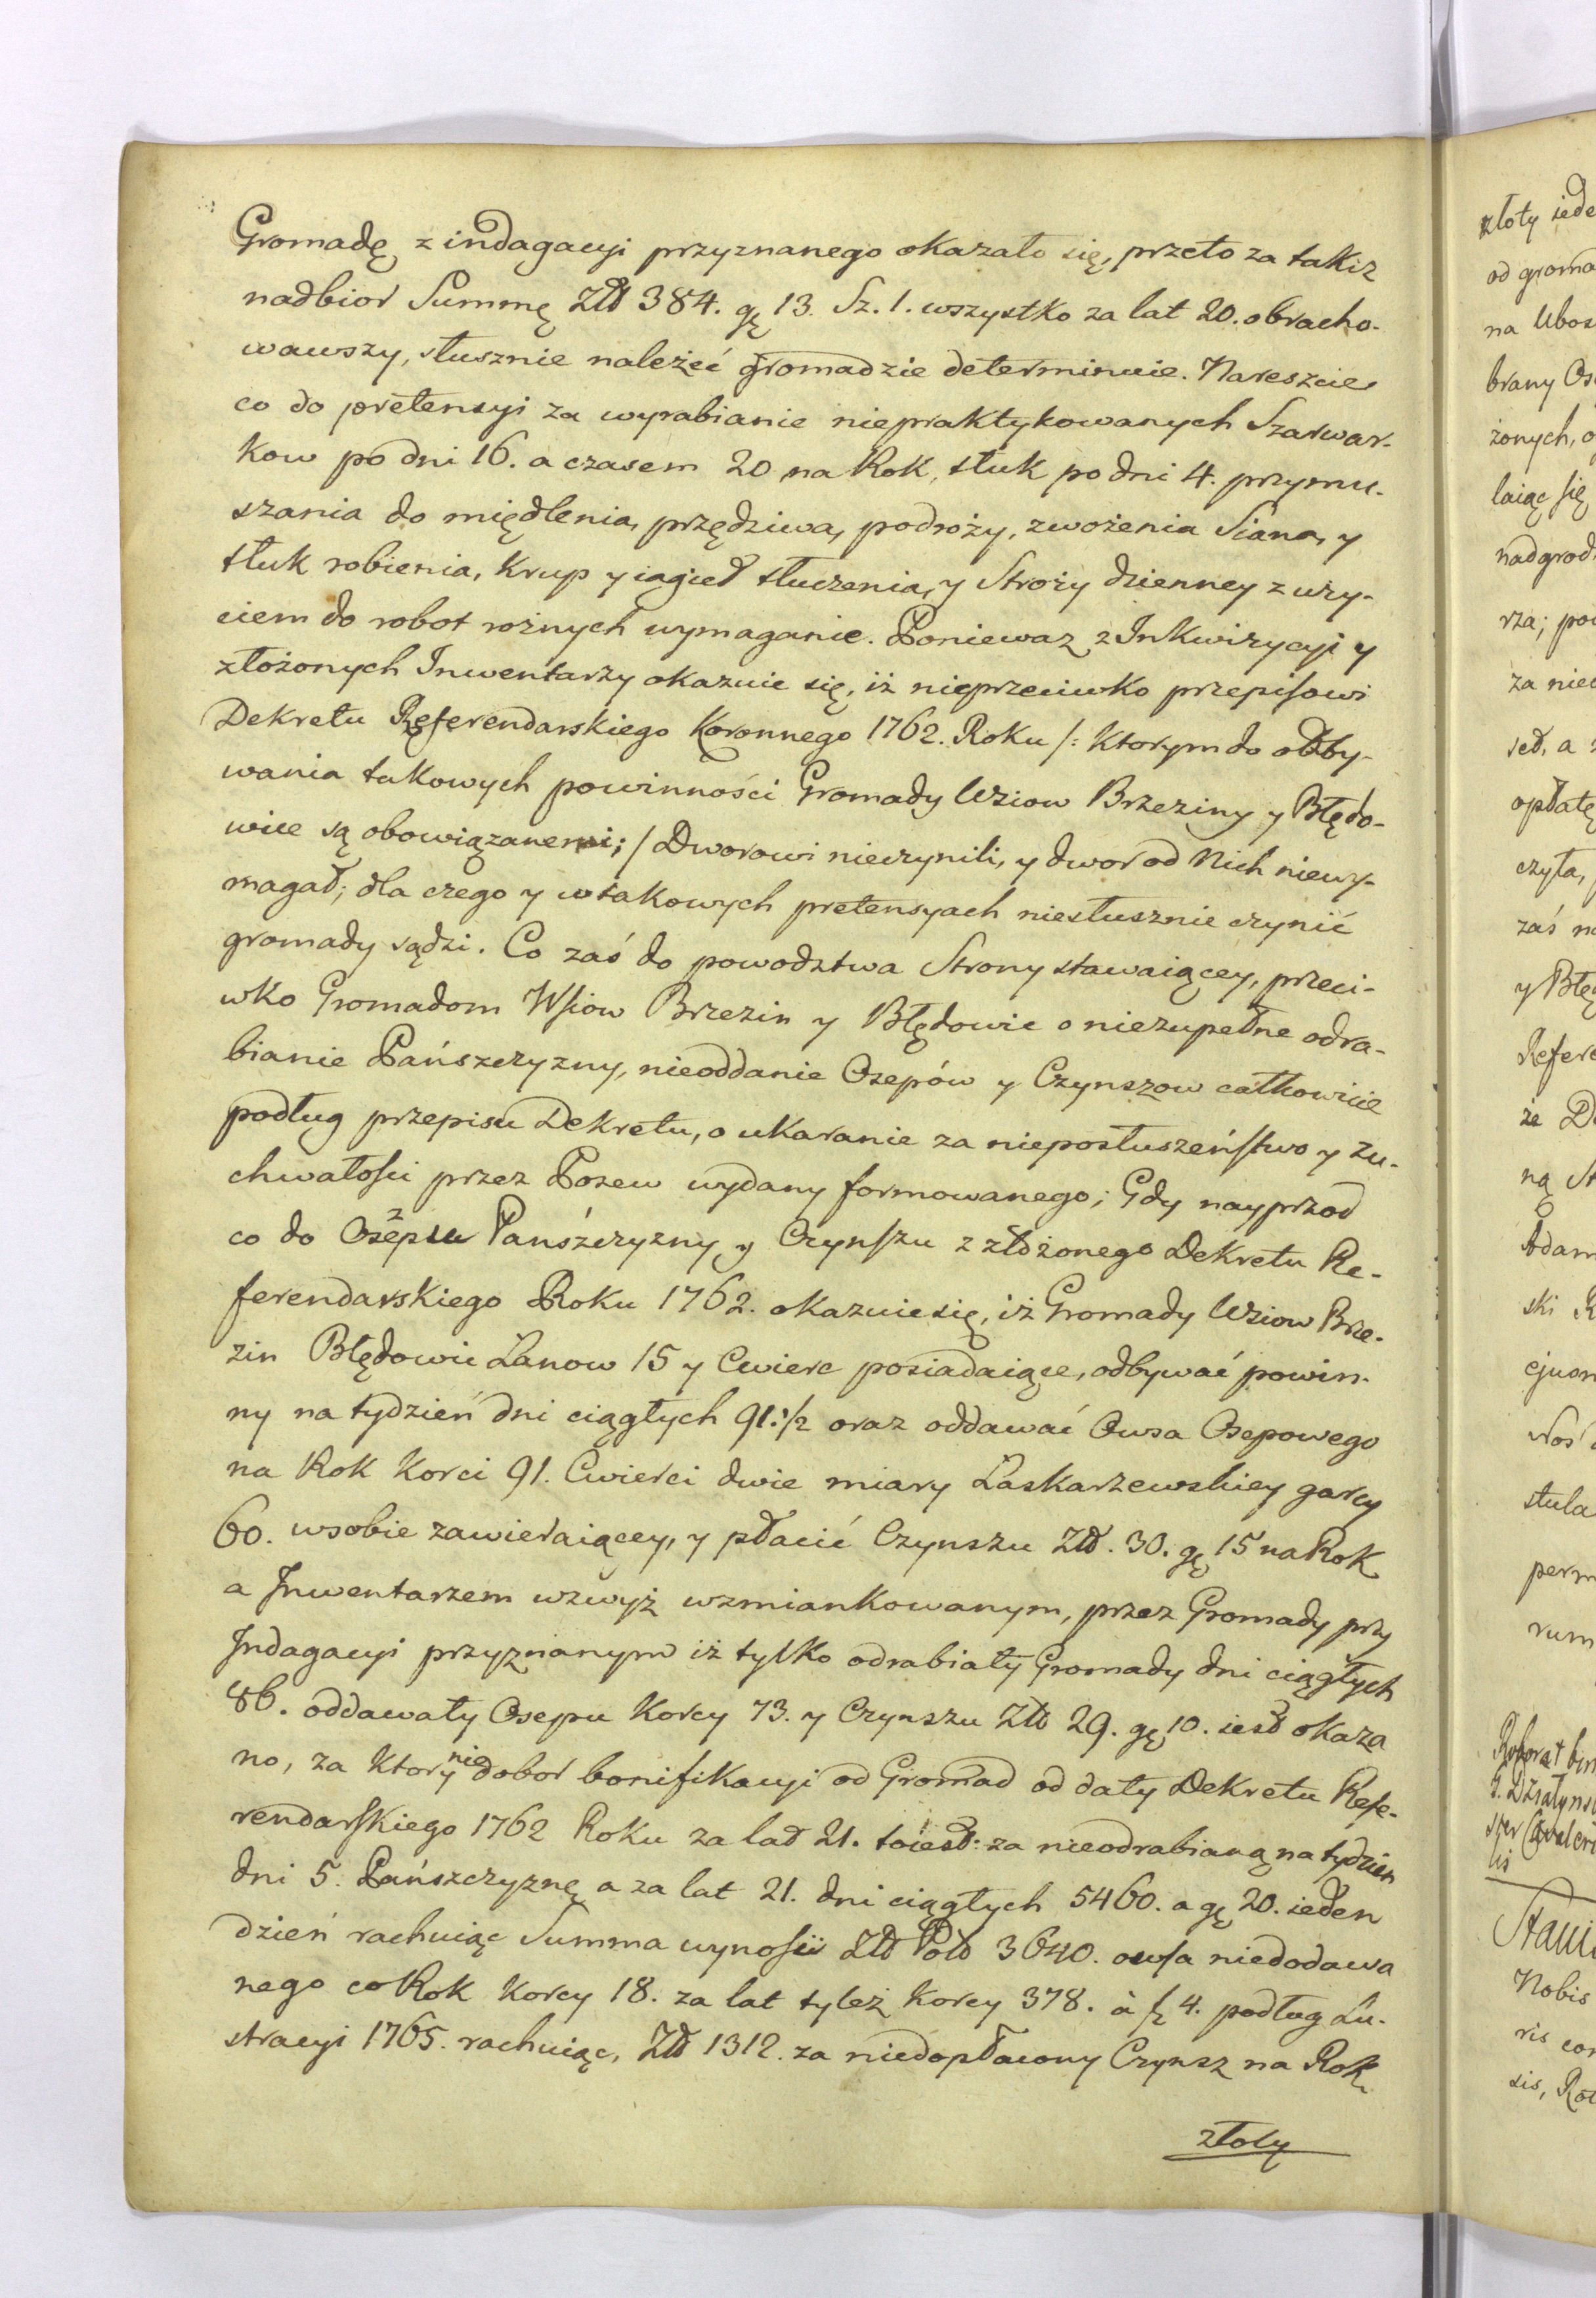 Gromadę z indagacyi przyznanego okazało się, przeto za takiż
nadbior Summę Złł 384. gę 13. Sz. 1. wszystko za lat 20. obracho-
wawszy, słusznie należeć gromadzie determinuie. Nareszcie
co do pretensyi za wyrabianie niepraktykowanych Szarwar-
kow po dni 16. a czasem 20 na Rok, stuk po dni 4. przymu-
szania do międlenia, przędziwa, podroży, zwożenia Siana, y
stuk robienia, Krup y iagieł tłuczenia, y Stroży dzienney z uży-
ciem do robot rożnych wymaganie. Poniewaz z Inkwizycyi y
złożonych Inwentarzy okazuie się, iż nieprzeciwko przepisowi
Dekretu Referendarskiego Koronnego 1762. Roku /: Ktorym do odby-
wania takowych powinności Gromady Wsiow Brzeziny y Błędo-
wice są obowiązanemi; / Dworowi nieczynili, y dwor od Nich niewy-
magał; dla czego y w takowych pretensyach niesłusznie czynić
gromady sądzi. Co zaś do powodztwa Strony stawaiącey, przeci-
wko Gromadom Wsiow Brzezin y Błędowic o niezupełne odra-
bianie Pańszczyzny, nieoddanie Osepów y Czynszow całkowicie
podług przepisu Dekretu, o ukaranie za nieposłuszeństwo y zu-
chwałości przez Pozew wydany formowanego; Gdy nayprzod
co do Osepu Panśzczyzny y Czynszu z złożonego Dekretu Re-
ferendarskiego Roku 1762. okazuie się, iż Gromady Wsiow Brze-
zin Błędowic Łanow 15 y Cwierc posiadaiące, odbywać powin-
ny na tydzień dni ciągłych 91.½ oraz oddawać Owsa Osepowego
na Rok Korci 91. Cwierci dwie miary Łaskarzewskiey garcy
60. w sobie zawieraiącey, y płacić Czynszu Złł. 30. gę 15 na Rok
a Inwentarzem wzwyż wzmiankowanym, przez Gromady przy
Indagacyi przyznanym iż tylko odrabiały Gromady dni ciągłych
86. oddawały Osepu Korcy 73. y Czynszu Złł 29. gę 10. iest okaza
no, za Ktory niedobor bonifikacyi od Gromad od daty Dekretu Refe-
rendarskiego 1762 Roku za lat 21. toiest: za nieodrabianą na tydzien
dni 5. Pańszczyznę a za lat 21. dni ciągłych 5460. a gę 20. ieden
dzień rachuiąc Summa wynosi Złł Poll 3640. owsa niedodawa
nego co Rok Korcy 18. za lat tyleż Korcy 378. à fł 4. podług Lu-
stracyi 1765. rachuiąc, Złł 1312. za niedopłacony Czynsz na Rok
złoty
złoty iede
od groma
na Ubos
brany Os
żonych, o
laiąc się
nadgrod
rza; po
za nied
sed, a
opłatę
czyła,
zaś n
y Błę
Refere
że D
ną St
Adam
ski R
ejusm
stula
perm
rum
Nobis
ris con
sis, Ro